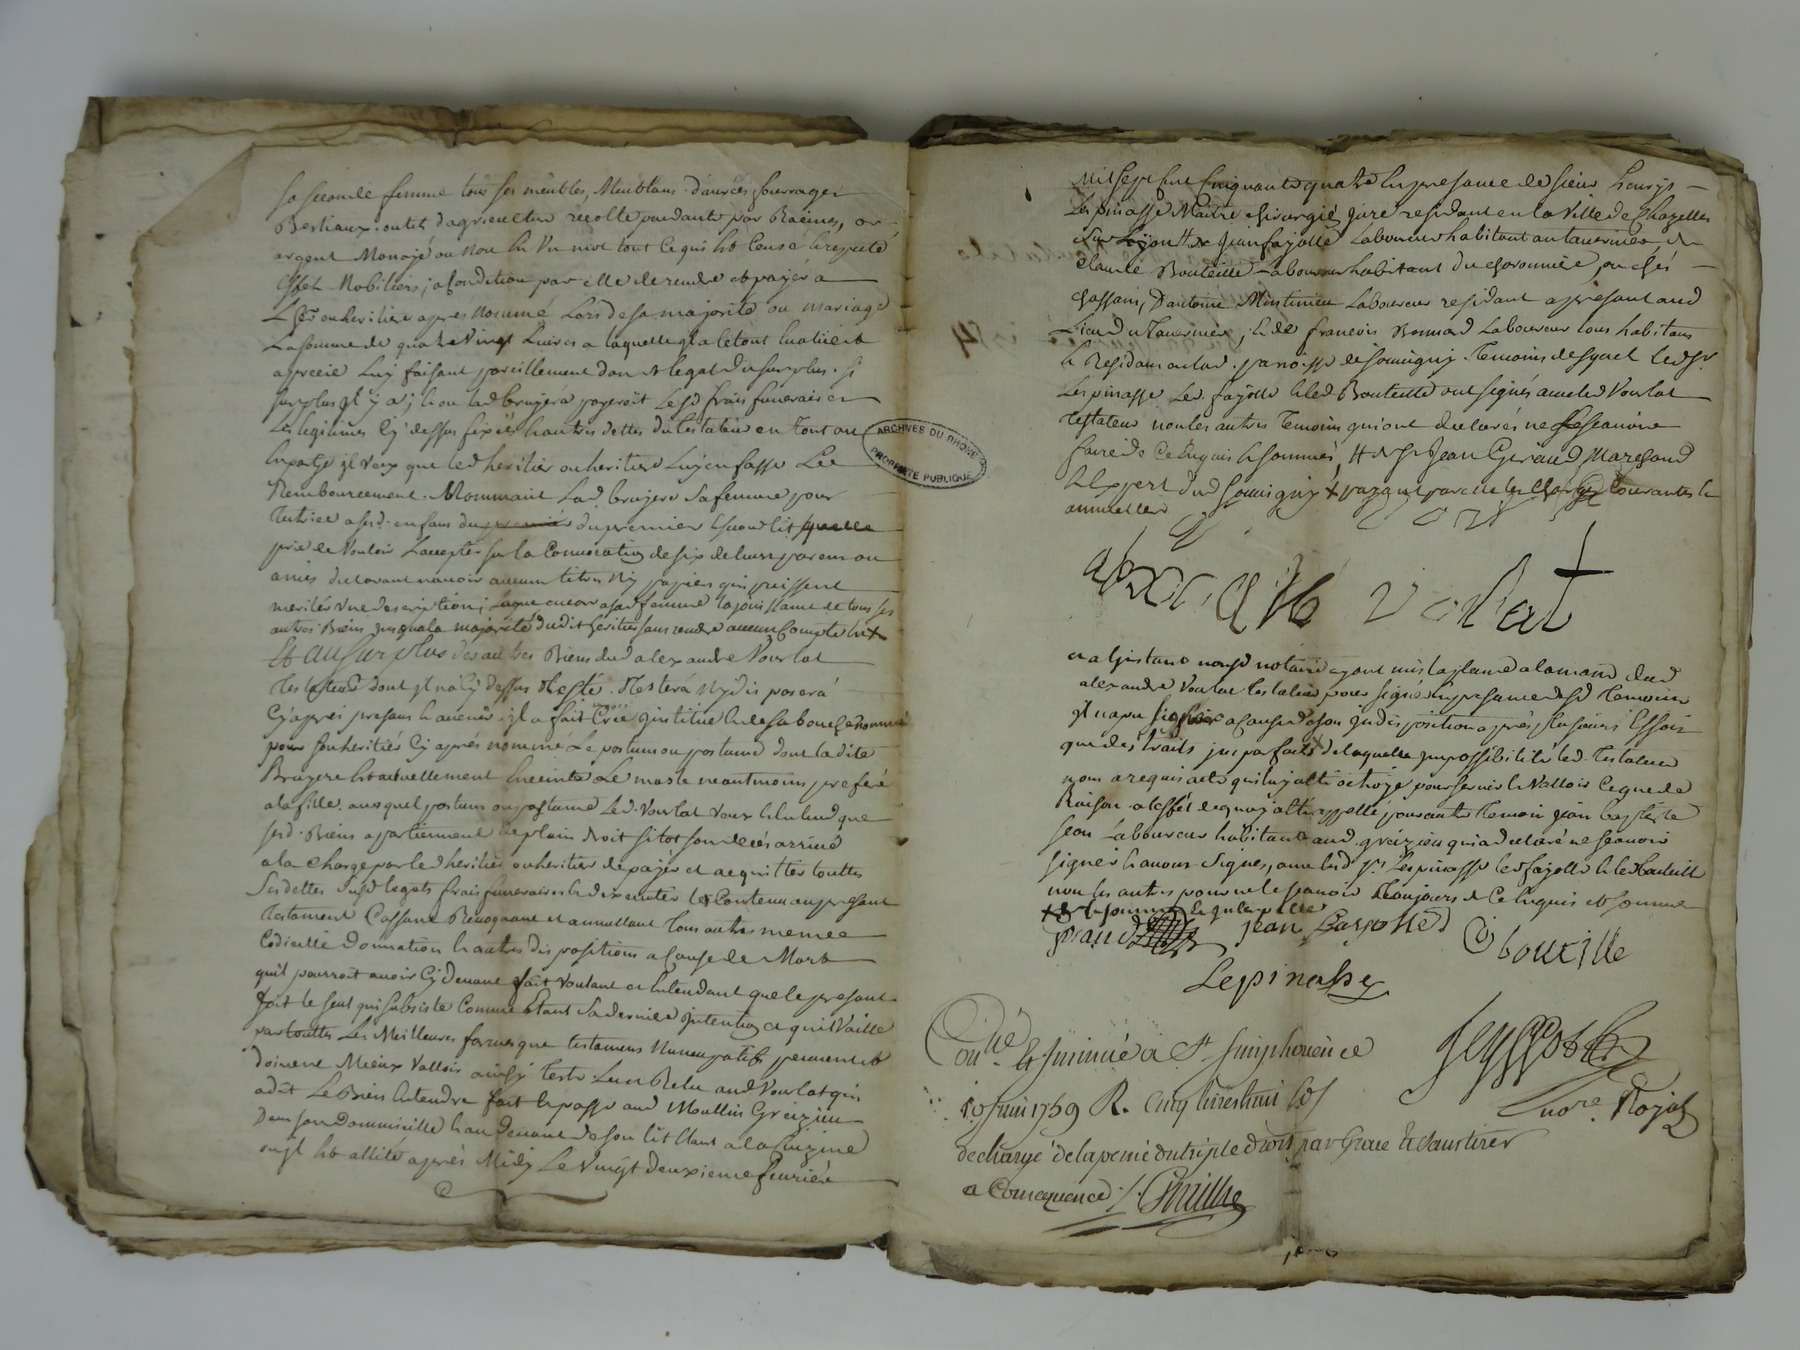 sa seconde femme tous ses meubles, Meublans danrées fourrages
Bestiaux outils d'agriculture recolte pendante par Racines, or
argent Monoyé ou non En Un mot tout Ce qui Est Censé Et reputé
Effet Mobiliers; a Condition par elle de rendre et payér a
L'her. ou heritiere apres nommé Lors de sa majorité ou mariage
La somme de quatre Vingt Livres a laquelle il a le tout Evalüé Et
apprecié Luy faisant pareillement don Et legat du surplus. si
surplus il y a; Et ou lad bruyere payeroit Lesd frais funeraires
Les legitimes Cy dessus fixées Et autres dettes du testateur en tout ou
En partye il veux que led heritier ou heritiere Luy en fasse Le
Remboursement. Nommant Lad. bruyere sa femme pour
Tutrice a sesd. enfans du premier du premier Et second lit
prié de Vouloir L'accepter sur la Convocation de six de leurs parens ou
amies declarant n'avoir aucun titres Ny papiers qui puissent
meriter une description; Legue encore a sad femme la jouissance de tous ses
autres Biens jusqu'a la majorité dudit heritier sans rendre aucun Compte Et
Et au surplus des autres Biens dud alexandre Vourlat
Testateur dont il n'a Cy dessus Testé. Testera Ny disposera
Cy après presans Et avenir il a fait Créé institué Et de sa bouche nommé
pour son heritiér Cy aprés nommé Le postum ou postume dont ladite
Bruyere Est actuellement Enceinte Le masle neantmoins preferé
a la fille. auxquel postum ou postume Led. Vourlat Veux Et Entend que
sesd. Biens appartiennent de plain droit sitot son decés arrivé
a la charge par led heritier ou heritier de payér et acquitter touttes
Ses dettes susd legats frais funeraires Et d'executer le Contenu au present
Testament Cassant Revoquant et annullant Tous autres
Codicille Donnation Et autres dispositions a Cause de Mort
qu'il pourroit avoir Cy devant fait Voulant et Entendant que le present
soit le seul qui subsiste Comme Etant Sa derniere Intention Et qu'il Vaille
par touttes Les Meilleures formes que testamens Nuncupatifs peuvent Et
doivent Mieux Valloir ainsy Testé. Lu et Relu aud Vourlat qui
a dit Le Bien Entendre fait Et passé aud Moullin Greizieu
Dans son Dommicille Et au devant de son lit Etant a la Cuizine
ou il Est allité après Midy Le Vingt deuxieme fevrier
Mil Sept Cent Cinquante quatre En presance de sieur henrys
Lespinasse Maitre chirurgié juré residant en la Ville de Chazelles
sur Lyon # de jean fayolle Laboureur habitant au tavernier, de
Claude Bouteille Laboureur habitant du Charonniere, ou chés
chassain, D'antoine Laboureur residant a present aud
Lieu du Tavernier, Et de francois Bonnard Laboureur tous habitans
Et Residans en lad. paroisse de Temoins desquel led sr.
Lespinasse Led. fayolle Et led Bouteille ont signés avec led Vourlat
testateur non les autres Temoins qui ont declarés ne Scavoir
faire de Ce Enquis Et sommés, # de Sr Jean Giraud Marchand
Et Expert dud Courantes Et
annuelles
alexandre vorlat
et a L'instant nousd notaire ayant mis la plume a la main dud
alexandre Vourlat testateur pour signér En presance desd Temoins
il n'a pu signer a Cause de son indisposition après plusieurs Essais
que des traits imparfaits de laquelle impossibilité led. Testateur
nous a requis acte qui luy a Eté octroyé pour servir Et Valloir Ce que de
Raison a L'effet de quoy a Eté appellé pour autre Temoin jean baptiste
Laboureur habitant aud. greizieu qui a declaré ne scavoir
signér Et avons signés, avec lesd Sr. Lespinasse led fayolle Et led Bouteille
non les autres pour ne le scavoir Toujours de Ce Enquis et sommé
jean fayolle
C bouteille
Lepinasse
Conlé. Et Insinué a St Simphorien ce
10 Juin 1759 R. Cinq livres huit sols
nore. Royal
dechargé de la peine du triple droit par Grace Et sans tirer
a Consequence
ARCHIVES DU RHONE
PROPRIÉTÉ PUBLIQUE